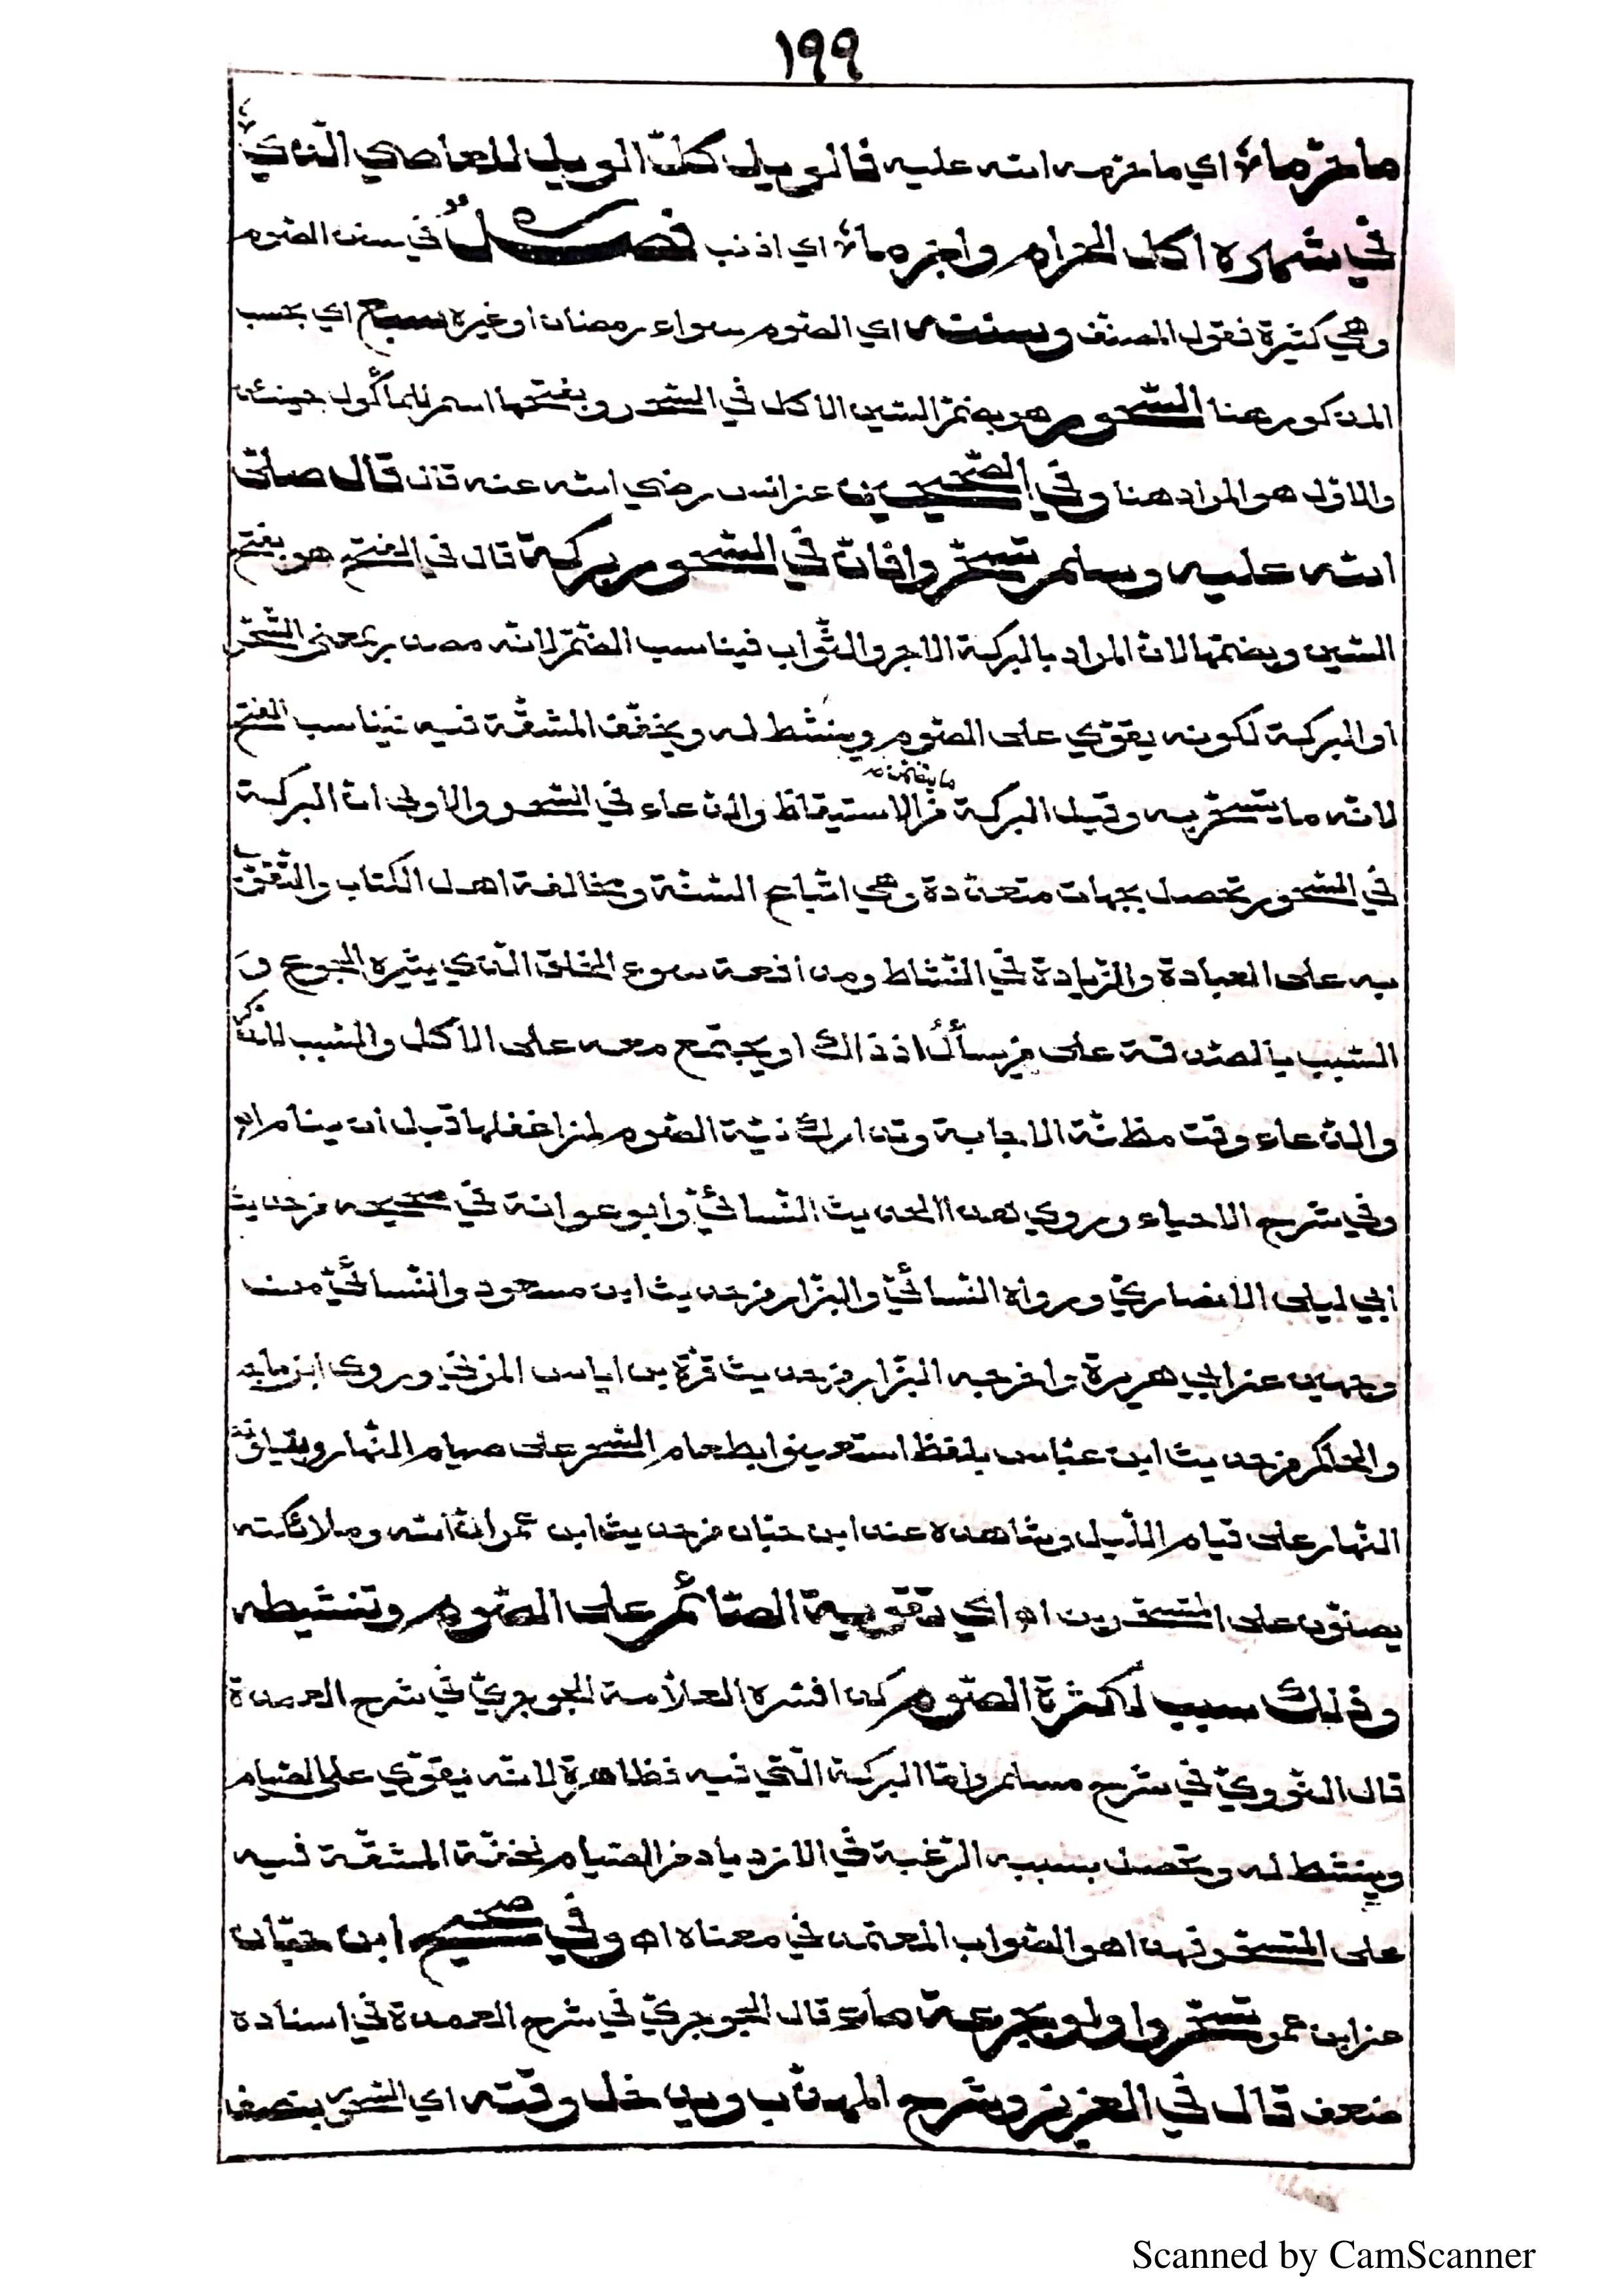 ١٩٩
ما حرّما اي ما حرمه الله عليه فالويل كلّ الويل للعاصي الّذي
في شهره اكل الحرام واجرما اي اذنب فصل في سنن الصّوم
وهي كثيرة فقول المصنّف وسننه اي الصّوم سواء رمضان او غيره سبع اي بحسب
المذكور هنا السّحور هو بضمّ السّين الاكل في السّحر وبفتحها اسم للمأكول حينئذ
والاوّل هو المراد هنا وفي الصّحيحين عن انس رضي الله عنه قال قال صلّى
الله عليه وسلّم تسحّروا فانّ في السّحور بركة قال في الفتح هو بفتح
السّين وبضمّها لانّ المراد بالبركة الاجر والثّواب فيناسب الضّمّ لانّه مصدر بمعنى التّسحّر
او البركة لكونه يقوّي على الصّوم وينشّط له ويخفّف المشقّة فيه فيناسب الفتح
لانّه ما يتسحّر به وقيل البركة ما يتضمّن من الاستيقاظ والدّعاء في السّحر والاولى انّ البركة
في السّحور تحصل بجهات متعدّدة وهي اتّباع السّنّة ومخالفة اهل الكتاب والتّقوّي
به على العبادة والزّيادة في النّشاط ومدافعة سوء الخلق الّذي يثيره الجوع و
التّسبّب بالصّدقة على من يسأل اذ ذاك او يجتمع معه على الاكل والتّسبّب للذّكر
والدّعاء وقت مظنّة الاجابة وتدارك نيّة الصّوم لمن اغفلها قبل ان ينام اه
وفي شرح الاحياء وروي هذا الحديث النّسائيّ وابو عوانة في صحيحه من حديث
ابي ليلى الانصاريّ ورواه النّسائيّ والبزّار من حديث ابن مسعود والنّسائيّ من
وجهين عن ابي هريرة واخرجه البزّار من حديث قرّة بن اياس المزنيّ وروى ابن ماجه
والحاكم من حديث ابن عبّاس بلفظ استعينوا بطعام السّحر على صيام النّهار وبقيلولة
النّهار على قيام اللّيل وشاهده عند ابن حبّان من حديث ابن عمر انّ الله وملائكته
يصلّون على المتسحّرين اه اي تقوية الصّائم على الصّوم وتنشيطه
وذلك سبب لكثرة الصّوم كذا فسّره العلاّمة الجوجريّ في شرح العمدة
قال النّوويّ في شرح مسلم وامّا البركة الّتي فيه فظاهرة لانّه يقوّي على الصّيام
وينشّط له وتحصل بسببه الرّغبة في الازدياد من الصّيام لخفّة المشقّة فيه
على المتسحّر فهذا هو الصّواب المعتمد في معناه اه وفي صحيح ابن حبّان
عن ابن عمر تسحّروا ولو بجرعة ماء قال الجوجريّ في شرح العمدة في اسناده
ضعف قال في العزيز وشرح المهذّب ويدخل وقته اي السّحور بنصف
Scanned by CamScanner